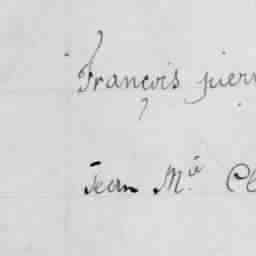 François pierr
Jean M.ie Cl